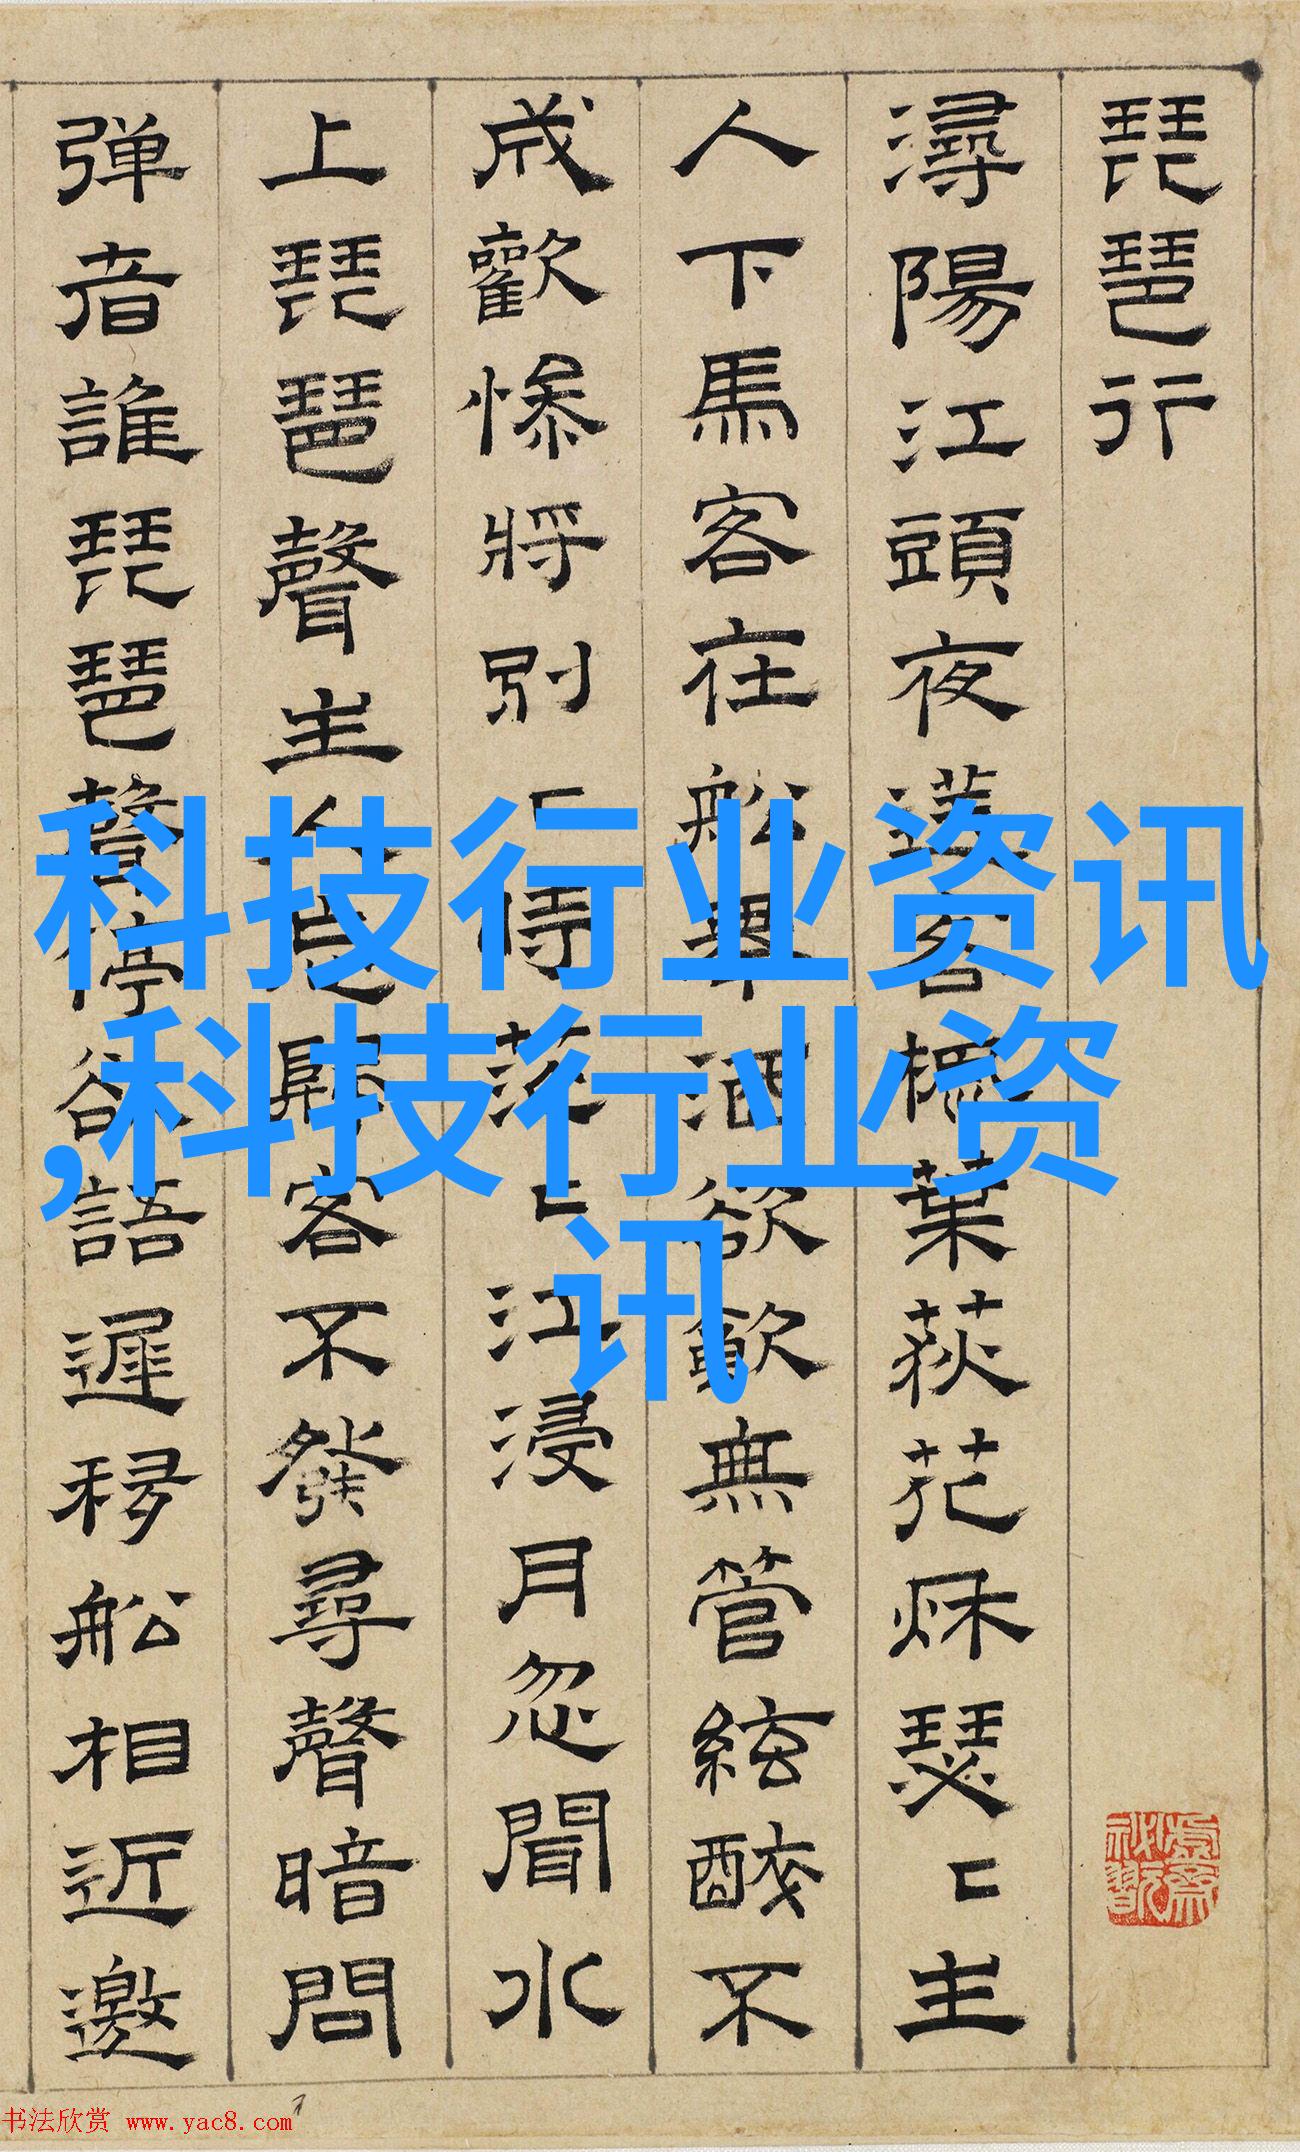 琵琶行
潯陽江頭夜送客楓葉荻花秋瑟〻主
人下馬客在船舉酒欲飲無管絃醉不
成歡慘將別〻時茫〻江浸月忽聞水
上琵琶聲主人忘歸客不發尋聲暗問
弹者誰琵琶聲停欲語遲移船相近邀
科技行业资讯
,科技行业资
讯
书法欣赏 www.yac8.com